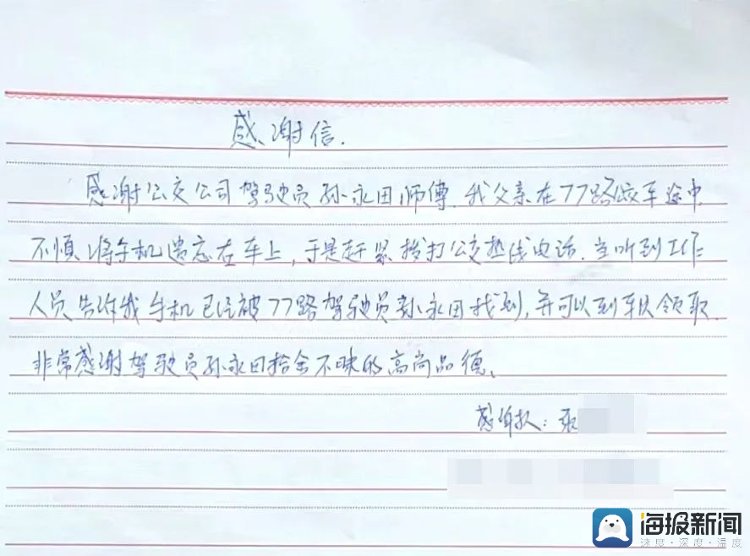 感谢信.
感谢公交公司驾驶员孙永田师傅.我父亲在77路公交车途中
不慎将手机遗忘在车上,于是赶紧拨打公交热线电话.当听到工作
人员告诉我手机已经被77路驾驶员孙永田找到,并可以到车队领取.
非常感谢驾驶员孙永田拾金不昧的高尚品德。
感谢人:张
海报新闻
速度·深度·温度